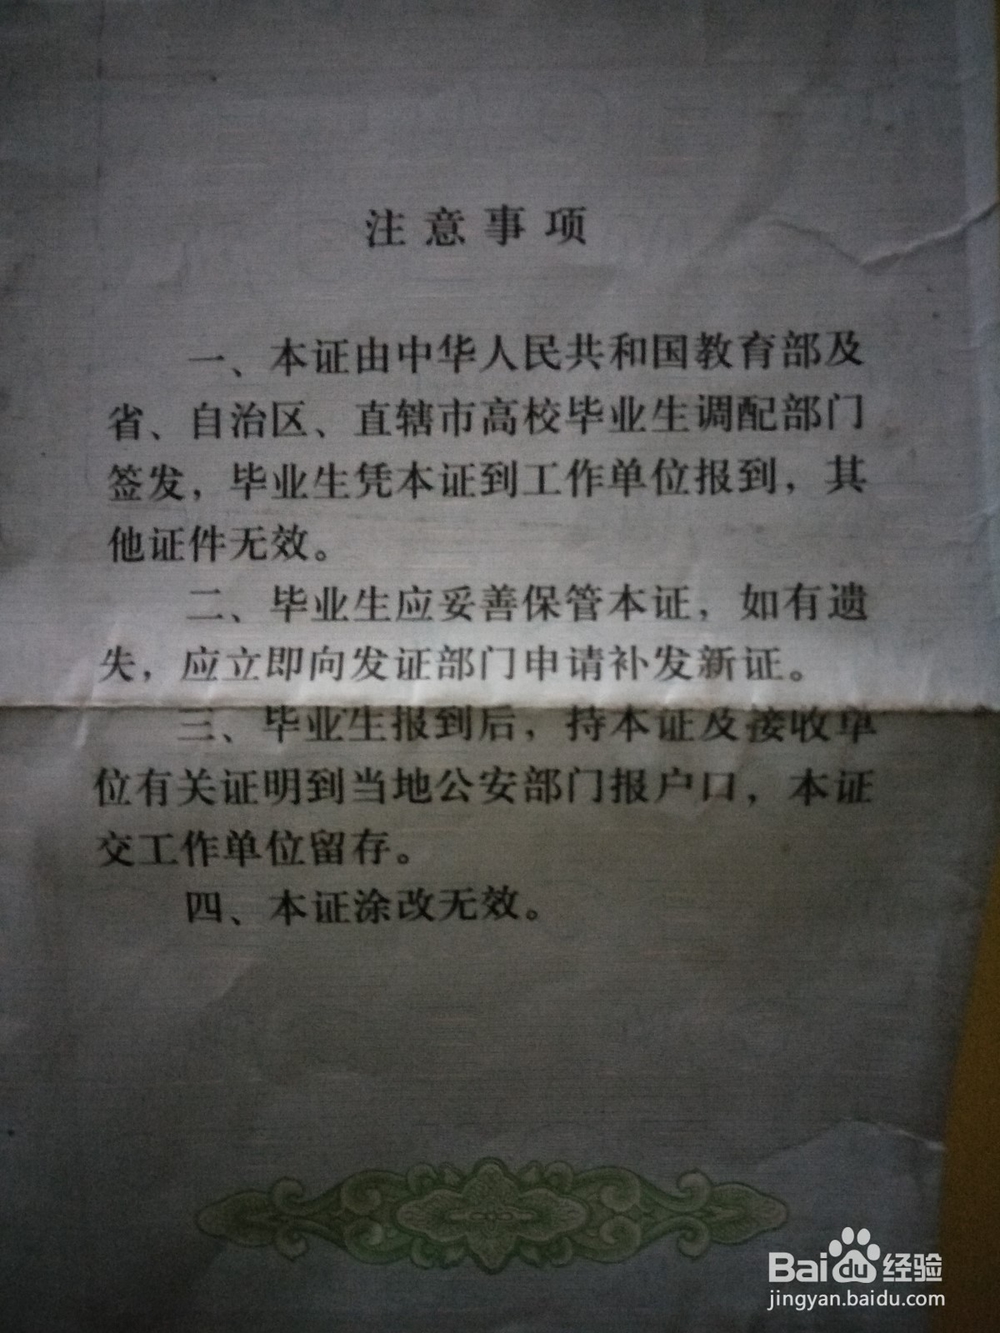 注意事项
一、本证由中华人民共和国教育部及
省、自治区、直辖市高校毕业生调配部门
签发，毕业生凭本证到工作单位报到，其
他证件无效。
二、毕业生应妥善保管本证，如有遗
失，应立即向发证部门申请补发新证。
三、毕业生报到后，持本证及接收单
位有关证明到当地公安部门报户口，本证
交工作单位留存。
四、本证涂改无效。
Bai du 经验
jingyan.baidu.com